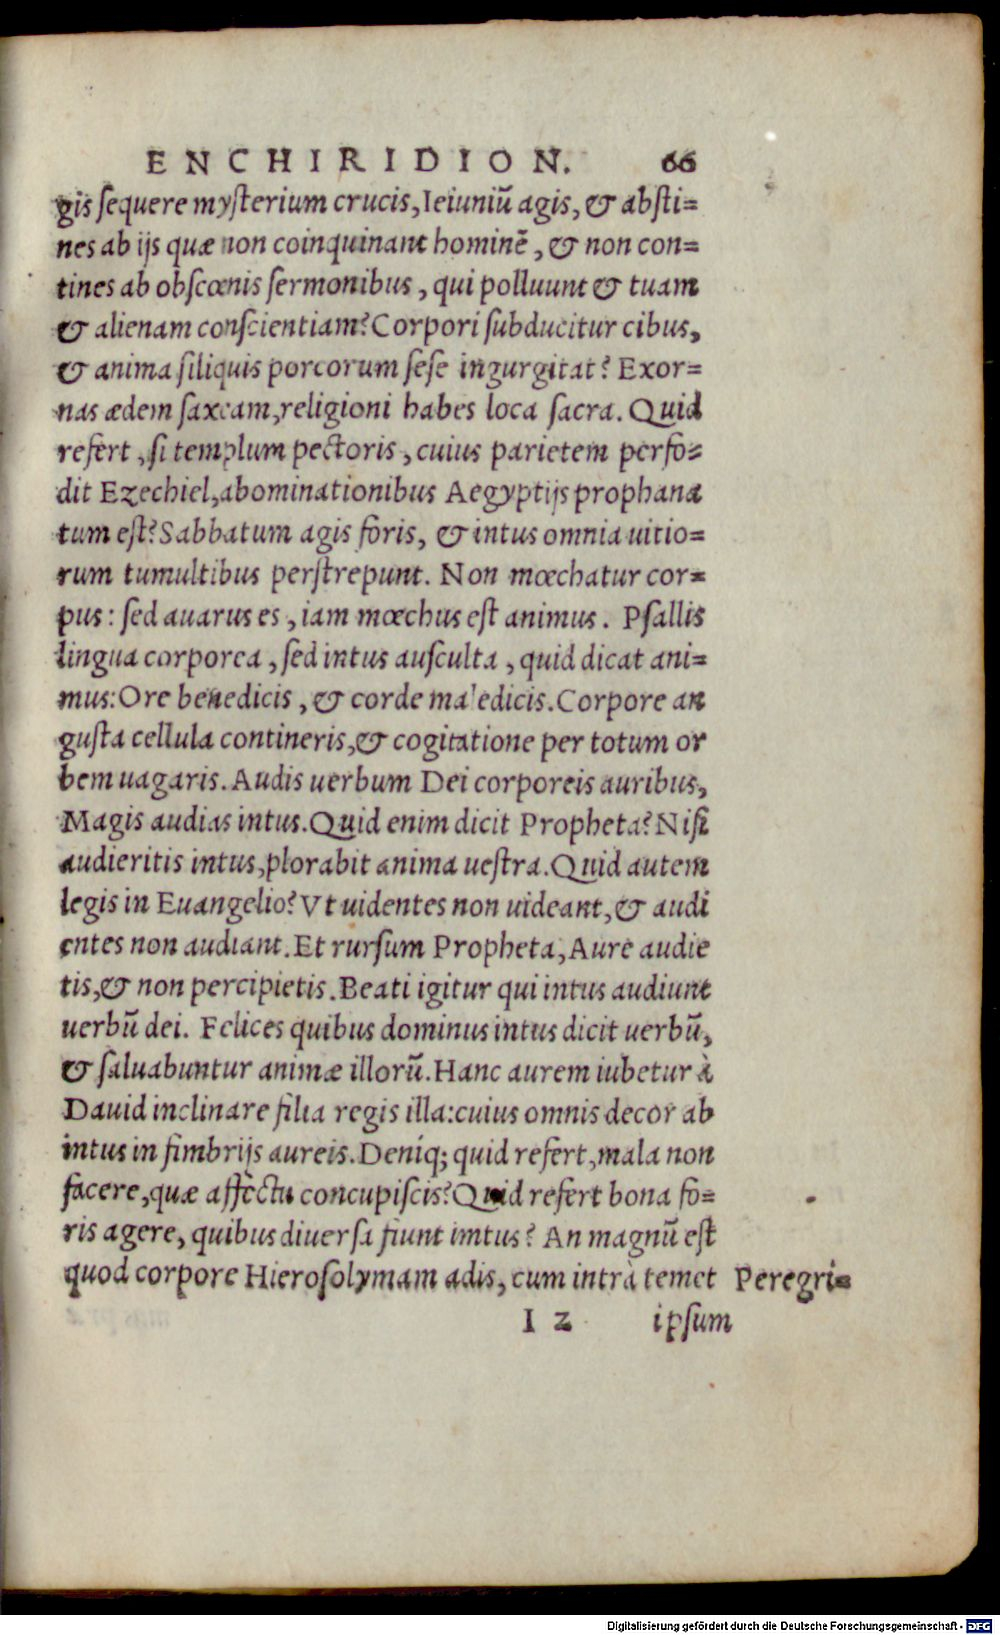 ENCHIRIDION. 66
gis sequere mysterium crucis, Ieiuniũ agis, & absti=
nes ab ijs quæ non coinquinant hominẽ, & non con=
tines ab obscœnis sermonibus, qui polluunt & tuam
& alienam conscientiam? Corpori subducitur cibus,
& anima siliquis porcorum sese ingurgitat? Exor=
nas ædem saxeam, religioni habes loca sacra. Quid
refert, si templum pectoris, cuius parietem perfo=
dit Ezechiel, abominationibus Aegyptijs prophana
tum est? Sabbatum agis foris, & intus omnia uitio=
rum tumultibus perstrepunt. Non mœchatur cor=
pus: sed auarus es, iam mœchus est animus. Psallis
lingua corporea, sed intus ausculta, quid dicat ani=
mus: Ore benedicis, & corde maledicis. Corpore an
gusta cellula contineris, & cogitatione per totum or
bem uagaris. Audis uerbum Dei corporeis auribus,
Magis audias intus. Quid enim dicit Propheta? Nisi
audieritis intus, plorabit anima uestra. Quid autem
legis in Euangelio? Vt uidentes non uideant, & audi
entes non audiant. Et rursum Propheta, Aure audie
tis, & non percipietis. Beati igitur qui intus audiunt
uerbũ dei. Felices quibus dominus intus dicit uerbũ,
& saluabuntur animæ illorũ. Hanc aurem iubetur à
Dauid inclinare filia regis illa: cuius omnis decor ab
intus in fimbrijs aureis. Deniq; quid refert, mala non
facere, quæ affectu concupiscis? Quid refert bona fo=
ris agere, quibus diuersa fiunt imtus? An magnũ est
quod corpore Hierosolymam adis, cum intrà temet Peregri=
I 2 ipsum
Digitalisierung gefördert durch die Deutsche Forschungsgemeinschaft - DFG